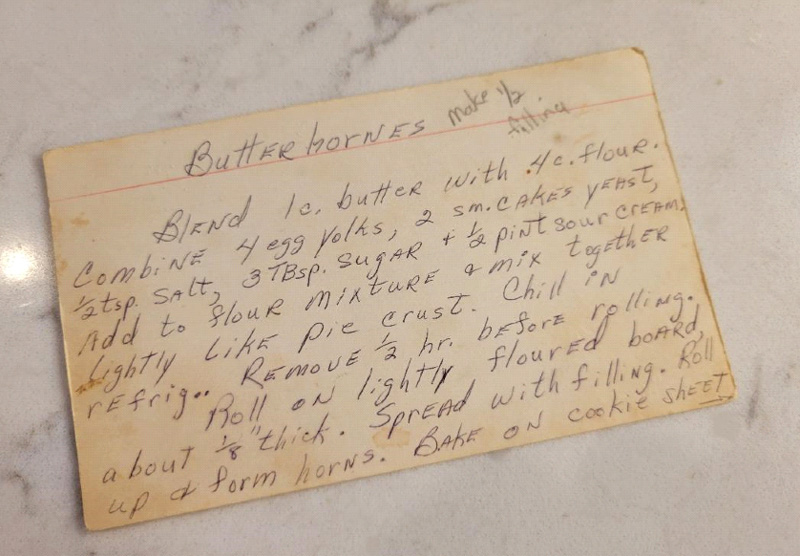 ButtER hornES make 1/2
filling
BlEND 1c. buttER with .4c. flour.
CombiNE 4 egg yolks, 2 sm. CAKES yEAst,
1/2 tsp. SAlt, 3 TBsp. SugAR + 1/2 pint sour CREAM.
Add to flour mixtuRE & mix togethER
lightly LIKE PiE CRUst. Chill IN
REfrig.. REMOVE 1/2 hr. bEforE rolling.
Roll ON lightly flouRED boARD,
about 1/8" thick. SpREAD with filling. Roll
up & form horNS. BAKE ON cookiE shEET →